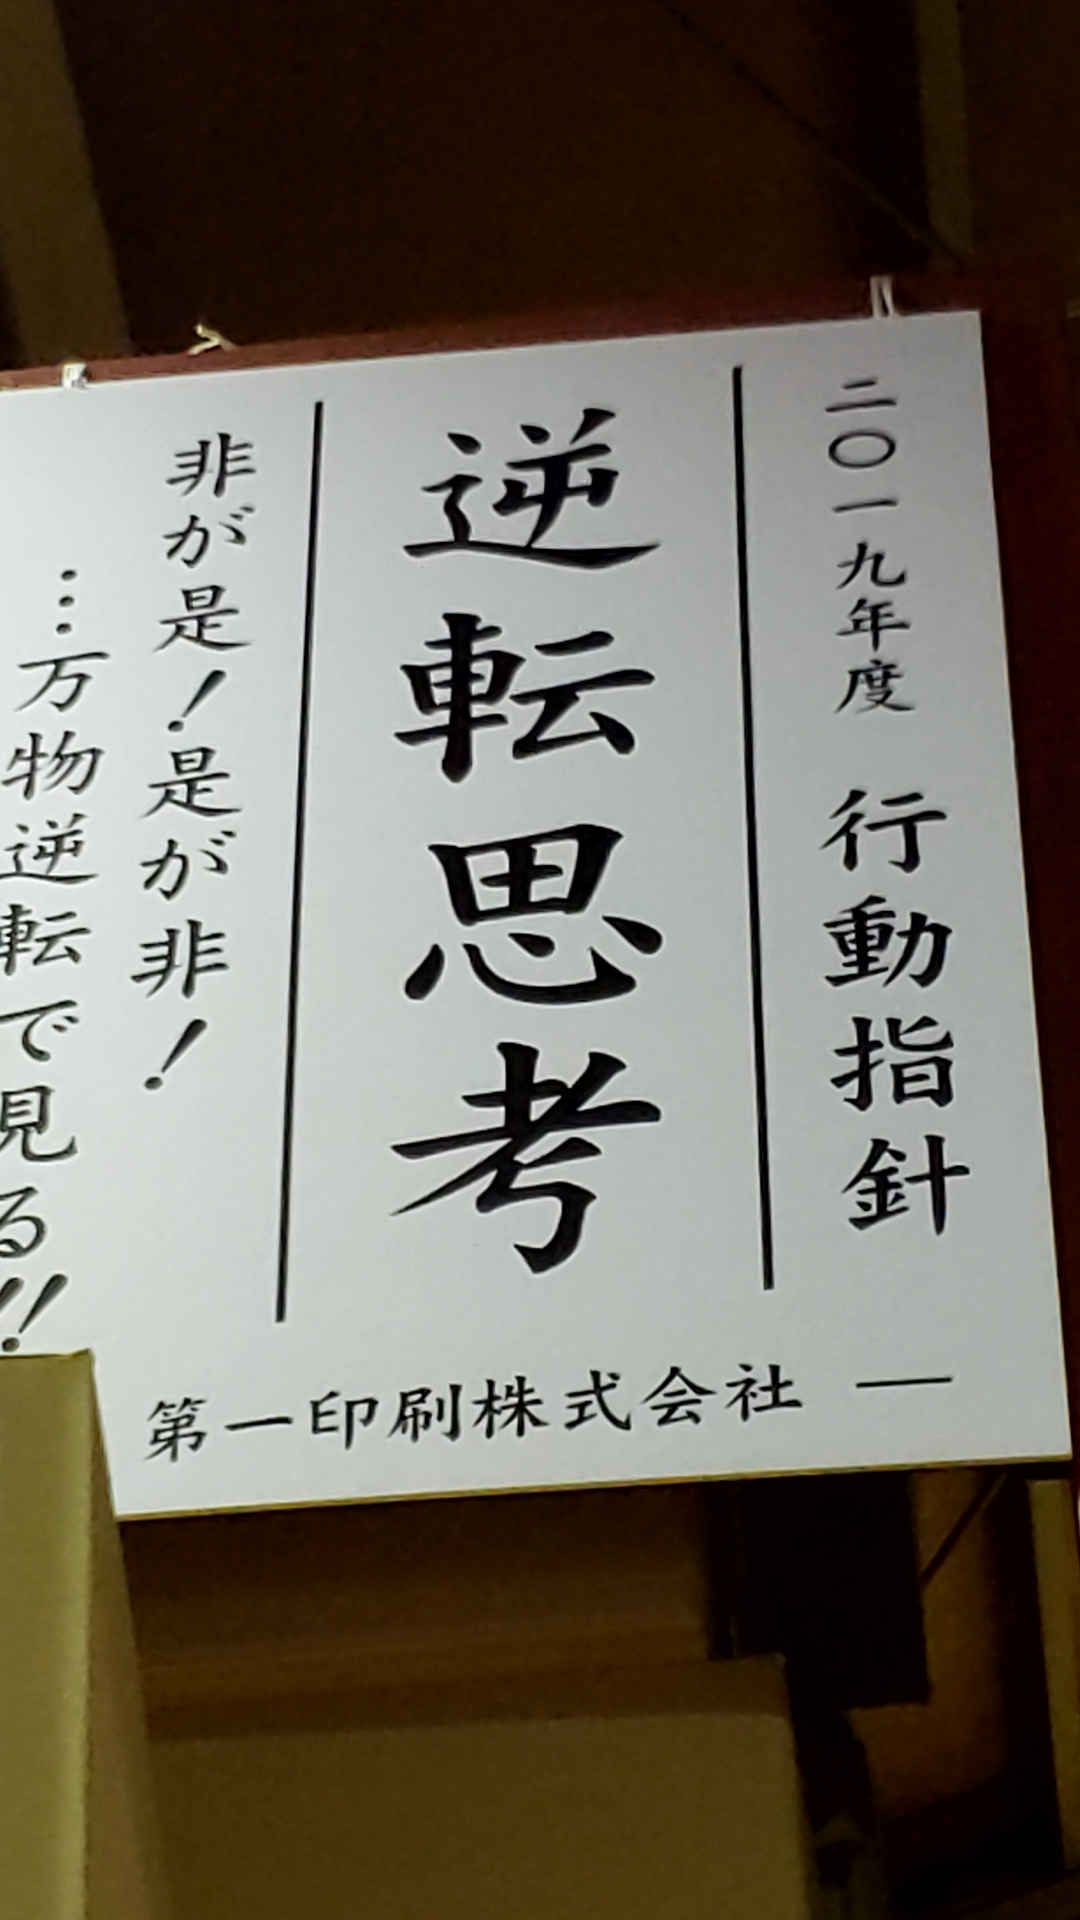 二〇一九年度 行動指針
逆転思考
非が是！是が非！
…万物逆転で見る!!
第一印刷株式会社